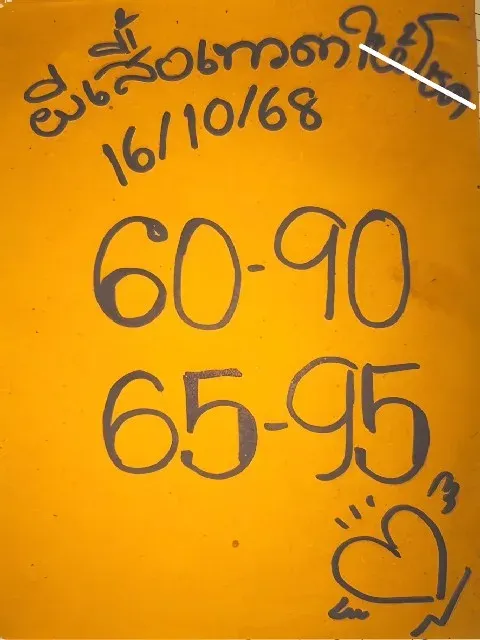 ผีเสื้อเทวดาให้โชค
16/10/68
60-90
65-95